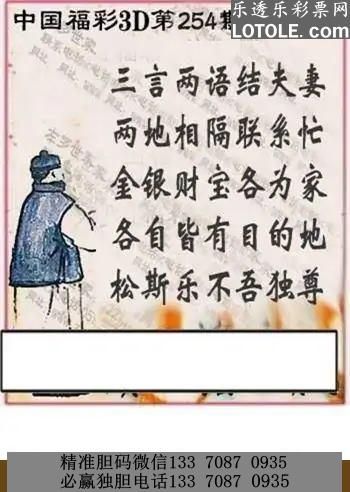 乐透乐彩票网
中国福彩3D第254期
LOTOLE.COM
三言两语结夫妻
两地相隔联系忙
金银财宝各为家
各自皆有目的地
松斯乐不吾独尊
精准胆码微信133 7087 0935
必赢独胆电话133 7087 0935